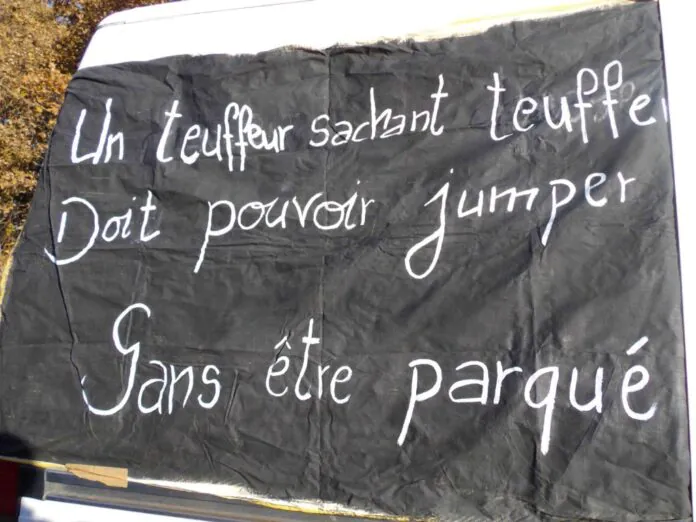 Un teuffeur sachant teuffer
Doit pouvoir jumper
Sans être parqué